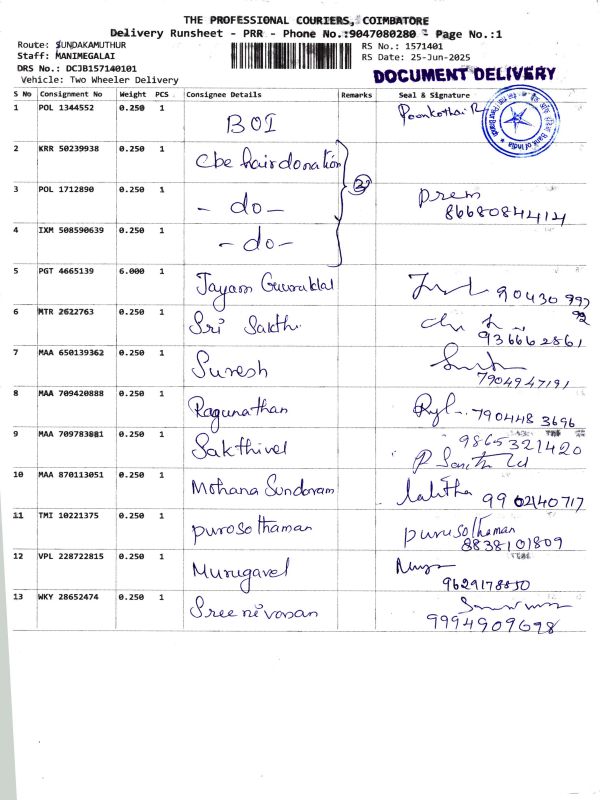 THE PROFESSIONAL COURIERS, COIMBATORE
Delivery Runsheet - PRR - Phone No.:9047080280 - Page No.:1
Route: SUNDAKAMUTHUR
RS No.: 1571401
Staff: MANIMEGALAI
RS Date: 25-Jun-2025
DRS No.: DCJB157140101
DOCUMENT DELIVERY
Vehicle: Two Wheeler Delivery
S No Consignment No Weight PCS Consignee Details Remarks Seal & Signature
1 POL 1344552 0.250 1 BOI Poonkothai R
Bank of India
2 KRR 50239938 0.250 1 Cbe hair donation
3 POL 1712890 0.250 1 - do - Prem
8668084414
4 IXM 508590639 0.250 1 - do -
5 PGT 4665139 6.000 1 Jayam 90430 997
92
6 MTR 2622763 0.250 1 Sri Sakthi
936662861
7 MAA 650139362 0.250 1 Suresh
7904947191
8 MAA 709420888 0.250 1 Ragunathan 790448 3696
9 MAA 709783881 0.250 1 Sakthivel 9865321420
10 MAA 870113051 0.250 1 Mohana Sundaram Lalitha 9902140717
11 TMI 10221375 0.250 1 purosothaman purusothaman
8838101809
12 VPL 228722815 0.250 1 Murugavel
9629178850
13 WKY 28652474 0.250 1 Sreenivasan
9994909698